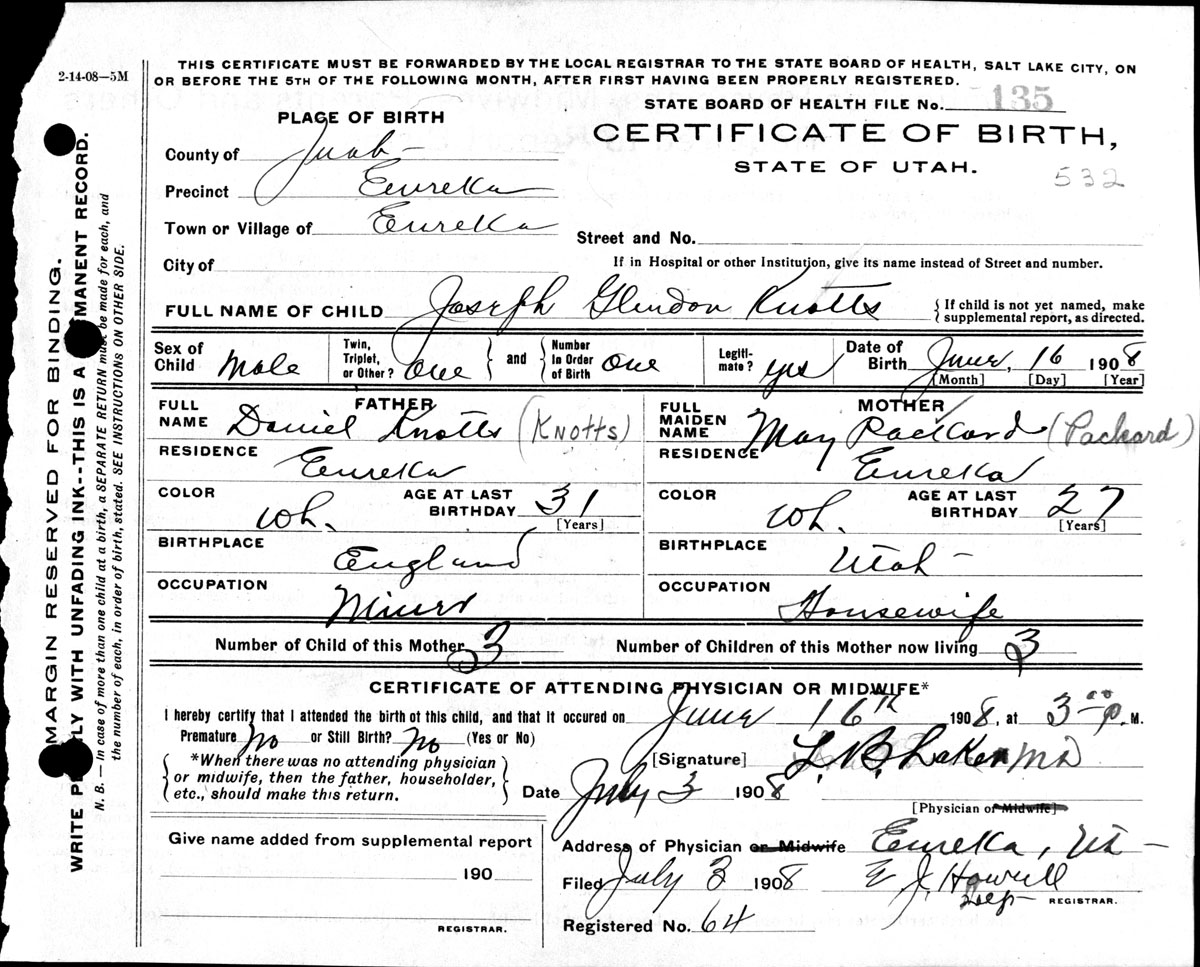 2-14-08—5M
THIS CERTIFICATE MUST BE FORWARDED BY THE LOCAL REGISTRAR TO THE STATE BOARD OF HEALTH, SALT LAKE CITY, ON
OR BEFORE THE 5TH OF THE FOLLOWING MONTH, AFTER FIRST HAVING BEEN PROPERLY REGISTERED.
STATE BOARD OF HEALTH FILE No. 135
PLACE OF BIRTH
CERTIFICATE OF BIRTH,
STATE OF UTAH.
532
County of Juab-
Precinct Eureka
Town or Village of Eureka
Street and No.
City of
If in Hospital or other Institution, give its name instead of Street and number.
FULL NAME OF CHILD Joseph Glendon Knotts
{If child is not yet named, make
supplemental report, as directed.
Sex of Child Male Twin, Triplet, or Other? One and Number In Order of Birth One Legiti-mate? yes Date of Birth June, 16 1908
[Month] [Day] [Year]
FATHER
FULL NAME Daniel Knotts (KNOTTS)
RESIDENCE Eureka
COLOR Wh. AGE AT LAST BIRTHDAY 31
[Years]
BIRTHPLACE England
OCCUPATION Miner
MOTHER
FULL MAIDEN NAME May Packard (Packard)
RESIDENCE Eureka
COLOR Wh. AGE AT LAST BIRTHDAY 27
[Years]
BIRTHPLACE Utah-
OCCUPATION Housewife
Number of Child of this Mother 3 Number of Children of this Mother now living 3
CERTIFICATE OF ATTENDING PHYSICIAN OR MIDWIFE*
I hereby certify that I attended the birth of this child, and that it occured on June 16th 1908, at 3 00 P. M.
Premature No or Still Birth? No (Yes or No)
{*When there was no attending physician
or midwife, then the father, householder,
etc., should make this return.}
[Signature] L. B. MD
Date July 3 1908
[Physician or Midwife]
Give name added from supplemental report
190
REGISTRAR.
Address of Physician or Midwife Eureka, Ut-
Filed July 3 1908 E. J. Howell
Dep- REGISTRAR.
Registered No. 64
MARGIN RESERVED FOR BINDING.
WRITE WITH UNFADING INK--THIS IS A RECORD.
N. B.—In case of more than one child at a birth, a SEPARATE RETURN must be made for each, and
the number of each, in order of birth, stated. SEE INSTRUCTIONS ON OTHER SIDE.